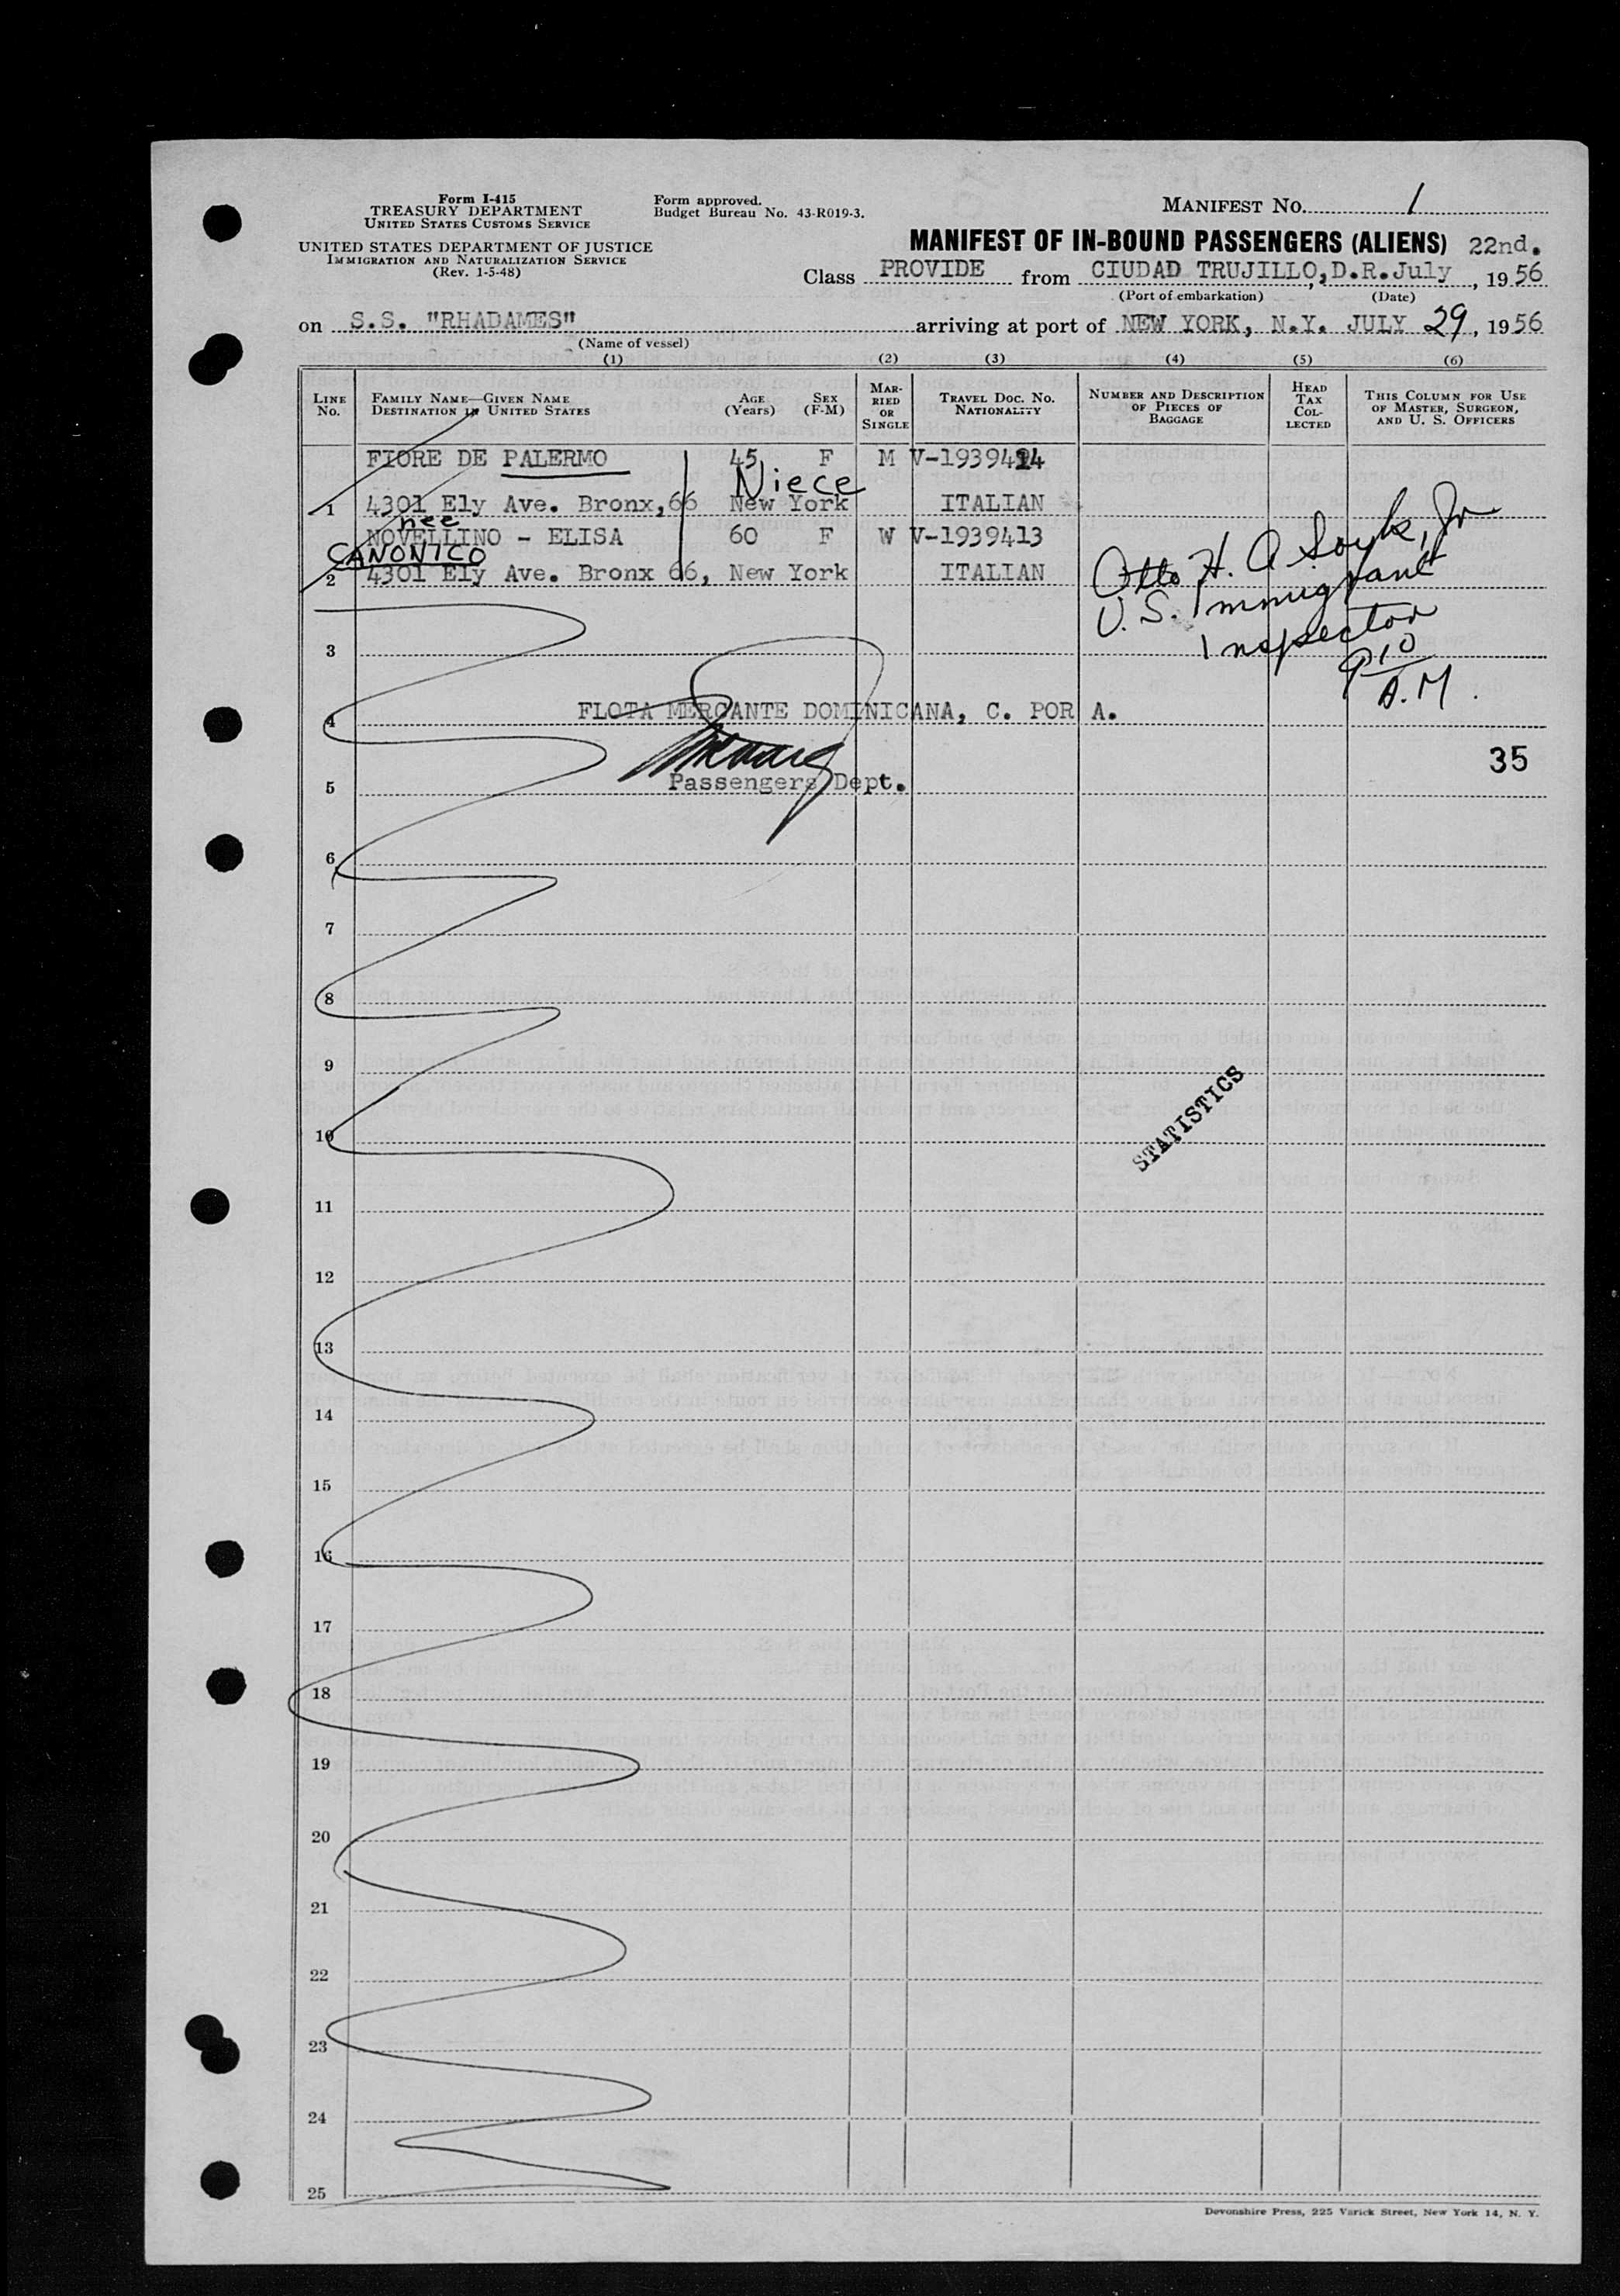 Form I-415
TREASURY DEPARTMENT
UNITED STATES CUSTOMS SERVICE
UNITED STATES DEPARTMENT OF JUSTICE
IMMIGRATION AND NATURALIZATION SERVICE
(Rev. 1-5-48)
Form approved.
Budget Bureau No. 43-R019-3.
MANIFEST No. 1
MANIFEST OF IN-BOUND PASSENGERS (ALIENS) 22nd.
Class PROVIDE from CIUDAD TRUJILLO, D.R. July, 1956
(Port of embarkation) (Date)
on S.S. "RHADAMES" arriving at port of NEW YORK, N.Y. JULY 29, 1956
(Name of vessel)
(1) (2) (3) (4) (5) (6)
LINE No. FAMILY NAME—GIVEN NAME DESTINATION IN UNITED STATES AGE (Years) SEX (F-M) MARRIED OR SINGLE TRAVEL DOC. No. NATIONALITY NUMBER AND DESCRIPTION OF PIECES OF BAGGAGE HEAD TAX COLLECTED THIS COLUMN FOR USE OF MASTER, SURGEON, AND U. S. OFFICERS
FIORE DE PALERMO 45 F M V-1939414
Niece
1 4301 Ely Ave. Bronx,66 New York ITALIAN
nee
NOVELLINO - ELISA 60 F W V-1939413
CANONICO
2 4301 Ely Ave. Bronx 66, New York ITALIAN
Otto H. A
Jr
U.S. Immigrant
Inspector
9 10
A.M.
3
4 FLOTA MERCANTE DOMINICANA, C. POR A.
35
5 Passengers Dept.
6
7
8
9
STATISTICS
10
11
12
13
14
15
16
17
18
19
20
21
22
23
24
25
Devonshire Press, 225 Varick Street, New York 14, N. Y.